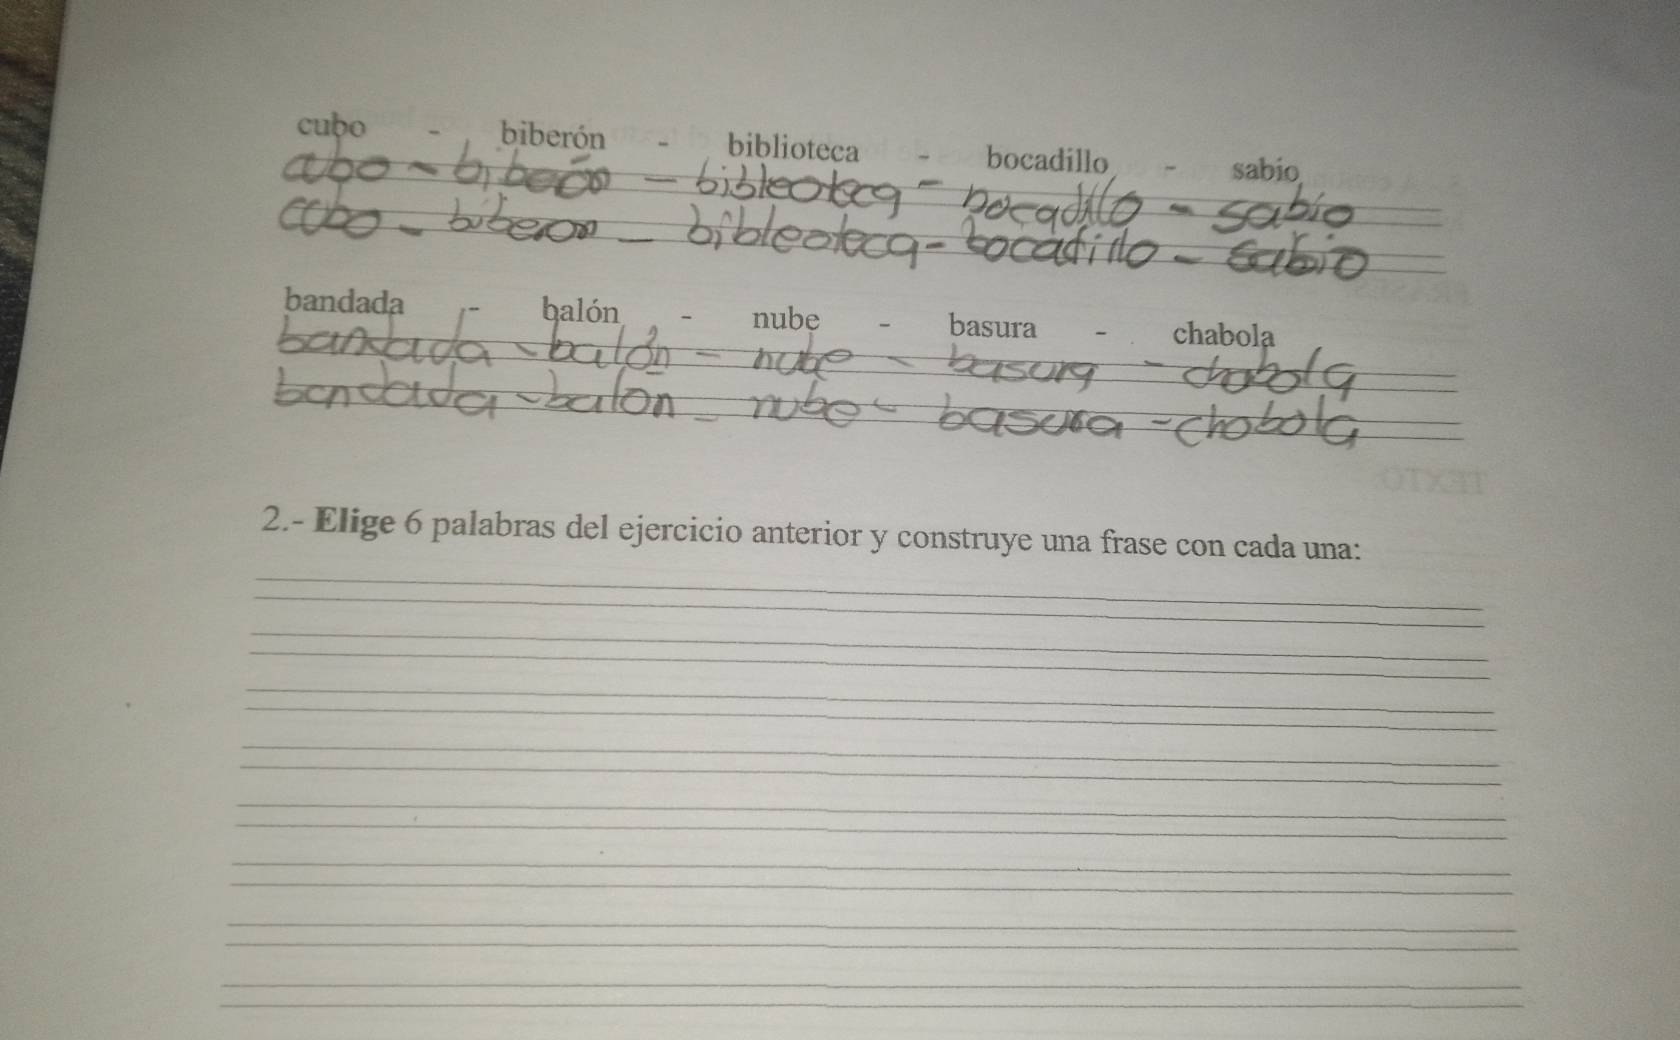 cubo - biberón - biblioteca - bocadillo - sabio
cubo - biberón - bibleoteca - bocadillo - sabio
cobo - biberon - bibleoteca - bocadillo - sabio
bandada - balón - nube - basura - chabola
bandada - balón - nube - basura - chabola
bandada - balon - nube - basura - chobola
2.- Elige 6 palabras del ejercicio anterior y construye una frase con cada una:
TEXTO